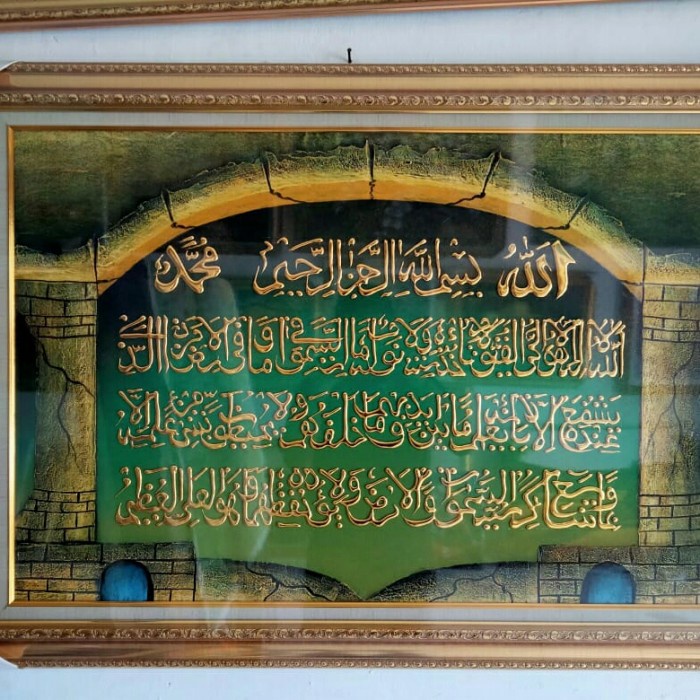 الله بسم الله الرحمن الرحيم محمد
الله لا إله إلا هو الحي القيوم لا تأخذه سنة ولا نوم له ما في السموات وما في الأرض من ذا الذي
يشفع عنده إلا بإذنه يعلم ما بين أيديهم وما خلفهم ولا يحيطون بشيء من علمه إلا
بما شاء وسع كرسيه السموات والأرض ولا يؤده حفظهما وهو العلي العظيم